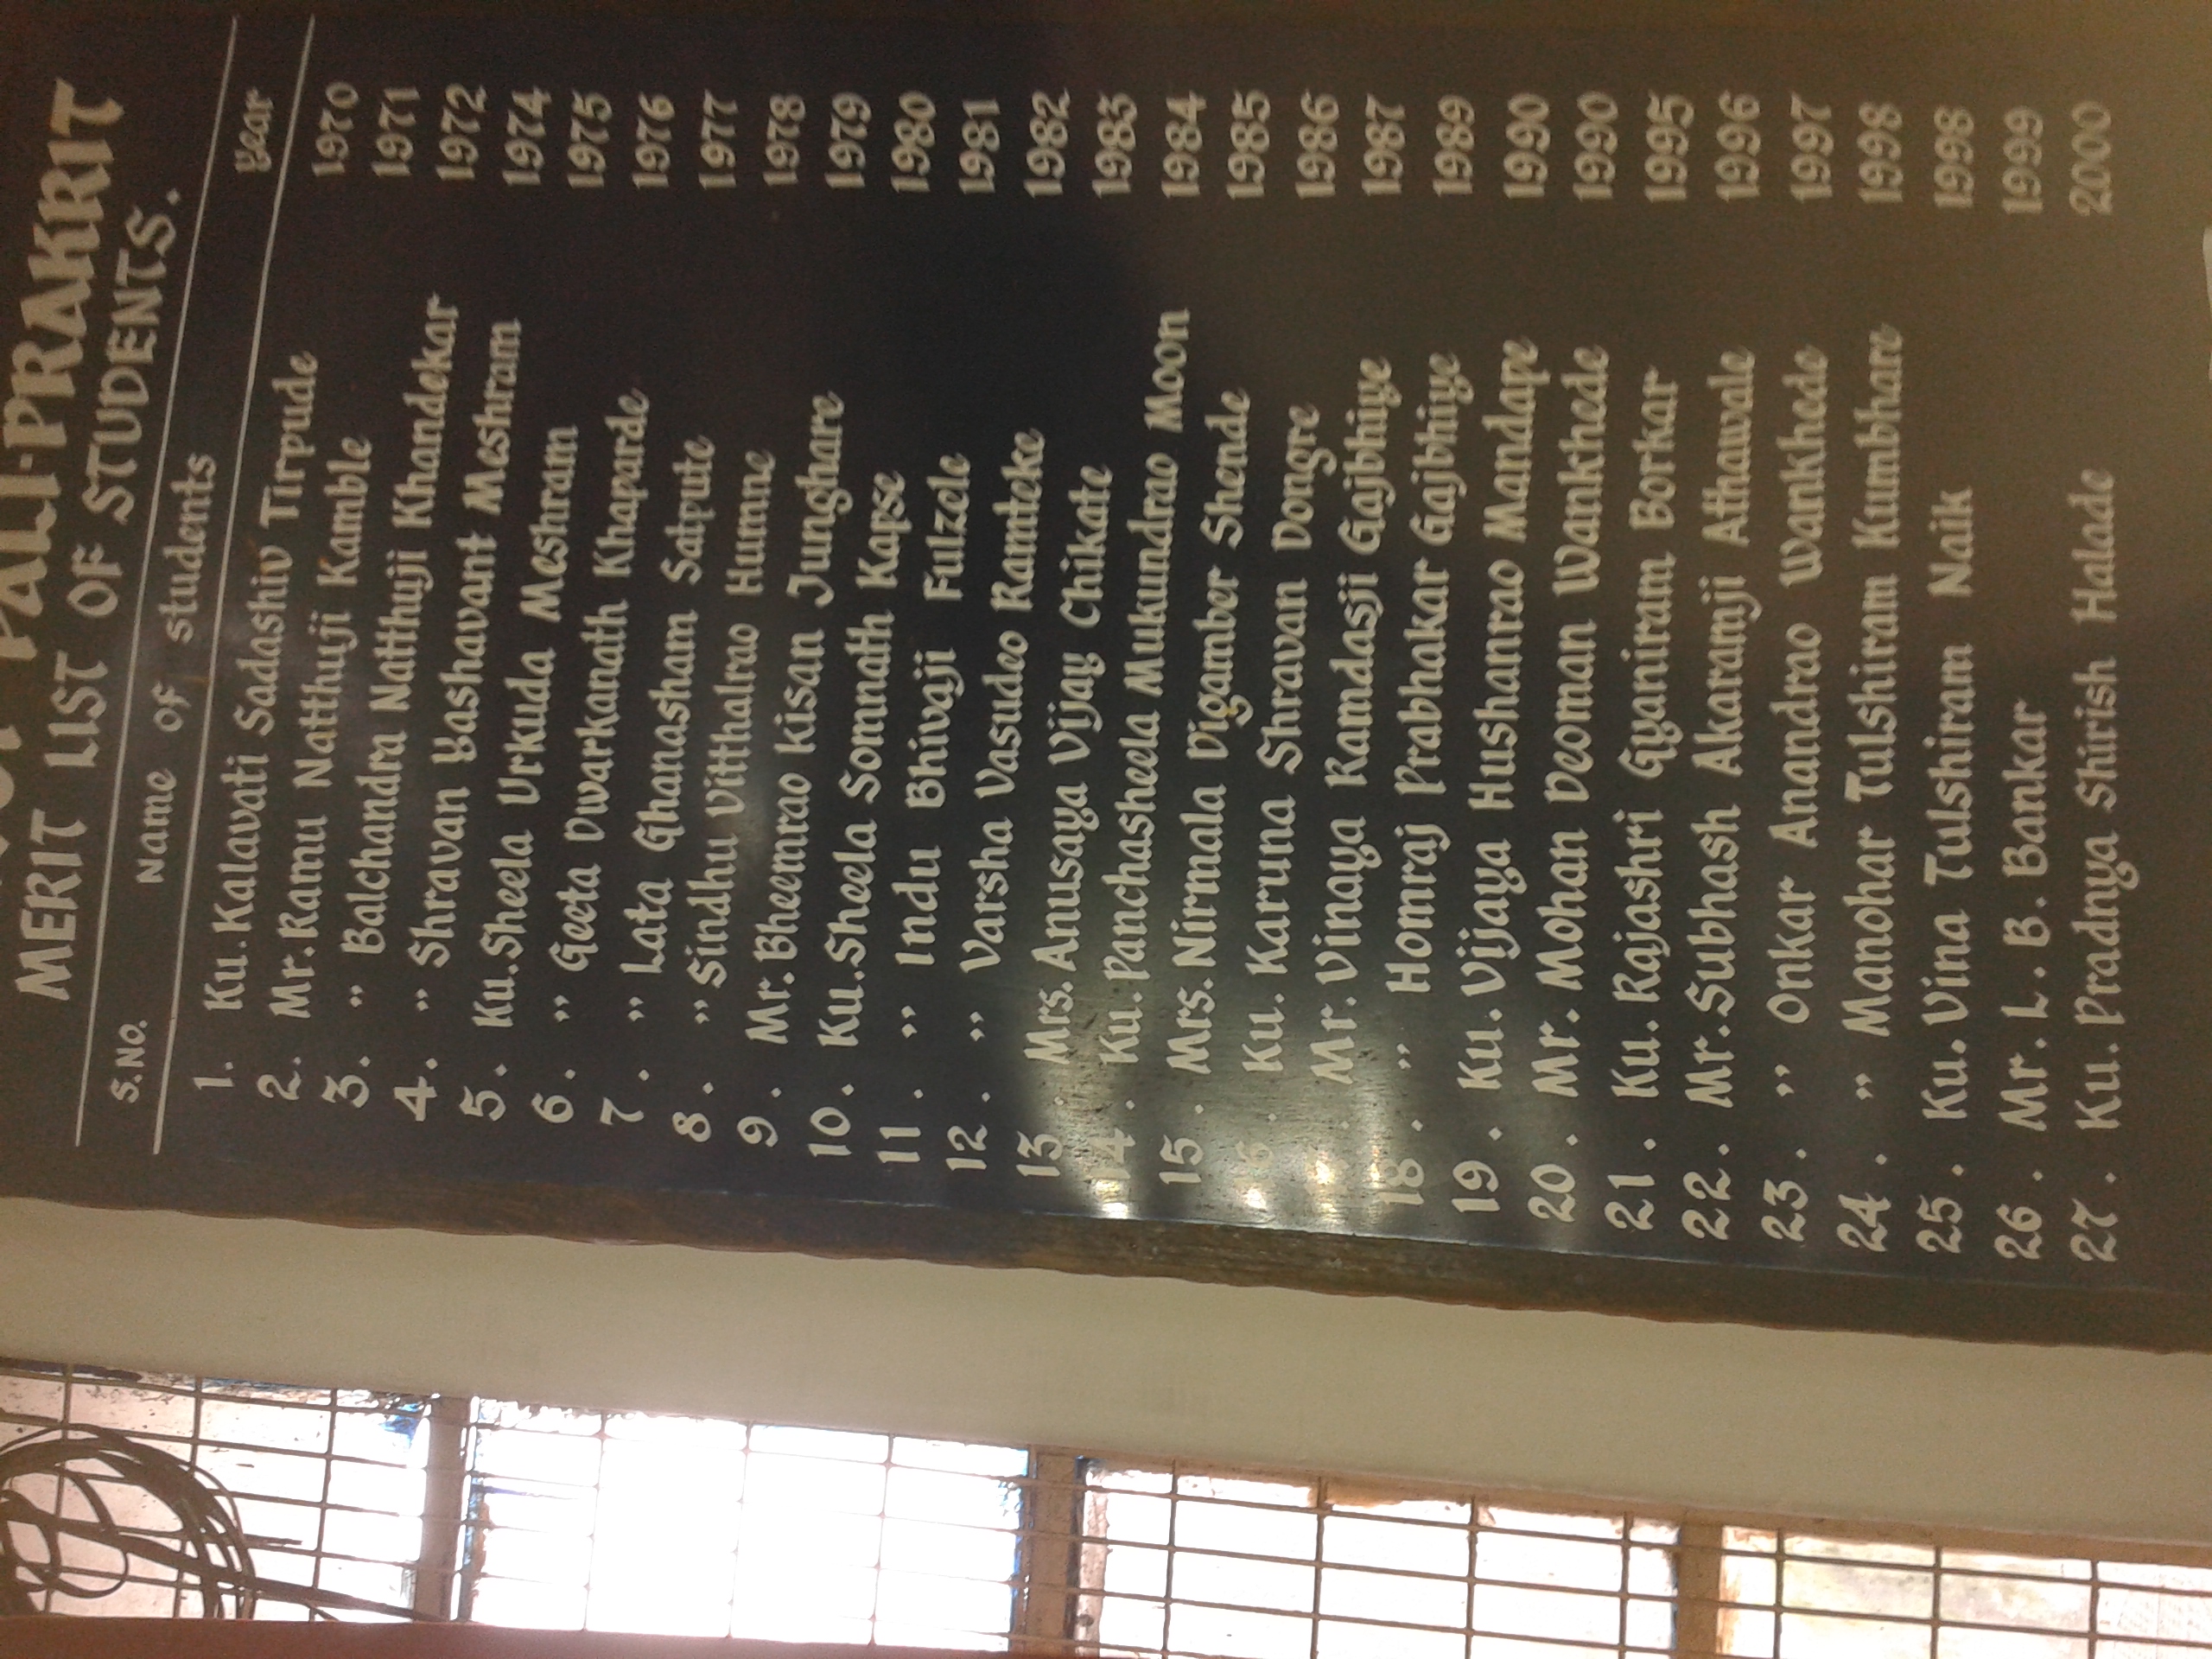 PALI-PRAKRIT
MERIT LIST OF STUDENTS.
S.NO. Name of students year
1. Ku. Kalavati Sadashiv Tirpude 1970
2. Mr. Ramu Natthuji Kamble 1971
3. " Balchandra Natthuji Khandekar 1972
4. " Shravan Yashavant Meshram 1974
5. Ku. Sheela Urkuda Meshram 1975
6. " Geeta Dwarkanath Khaparde 1976
7. " Lata Ghanasham Satpute 1977
8. " Sindhu Vitthalrao Humne 1978
9. Mr. Bheemrao Kisan Junghare 1979
10. Ku. Sheela Somnath Kapse 1980
11. " Indu Bhivaji Fulzele 1981
12. " Varsha Vasudeo Ramteke 1982
13. Mrs. Anusaya Vijay Chikate 1983
14. Ku. Panchasheela Mukundrao Moon 1984
15. Mrs. Nirmala Digamber Shende 1985
16. Ku. Karuna Shravan Dongre 1986
17. Mr. Vinaya Ramdasji Gajbhiye 1987
18. " Homraj Prabhakar Gajbhiye 1989
19. Ku. Vijaya Hushanrao Mandape 1990
20. Mr. Mohan Deoman Wankhede 1990
21. Ku. Rajashri Gyaniram Borkar 1995
22. Mr. Subhash Akaramji Athawale 1996
23. " Onkar Anandrao Wankhede 1997
24. " Manohar Tulshiram Kumbhare 1998
25. Ku. Vina Tulshiram Naik 1998
26. Mr. L. B. Bankar 1999
27. Ku. Pradnya Shirish Halade 2000